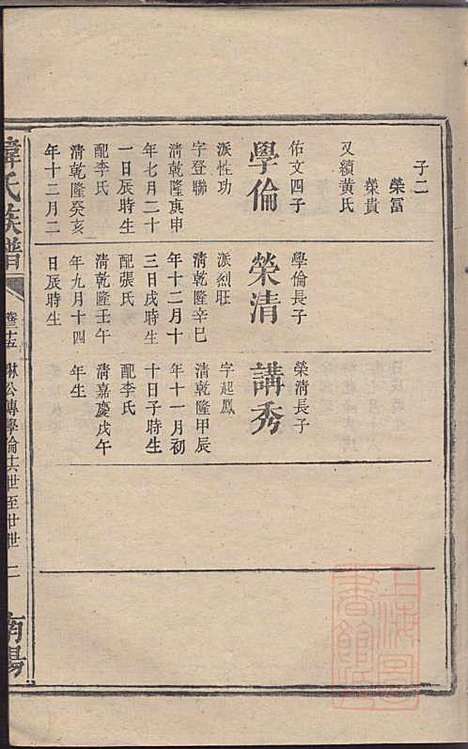 子二
榮富
榮貴
又續黃氏
佑文四子
學倫
派性功
字登聯
清乾隆庚申
年七月二十
一日辰時生
配李氏
清乾隆癸亥
年十二月二
日辰時生
學倫長子
榮清
派烈旺
清乾隆辛巳
年十二月十
三日戌時生
配張氏
清乾隆壬午
年九月十四
榮清長子
講秀
字起鳳
清乾隆甲辰
年十一月初
十日子時生
配李氏
清嘉慶戊午
年生
氏族譜
公傳學倫十六世至廿世
二
南陽
上海圖書館藏